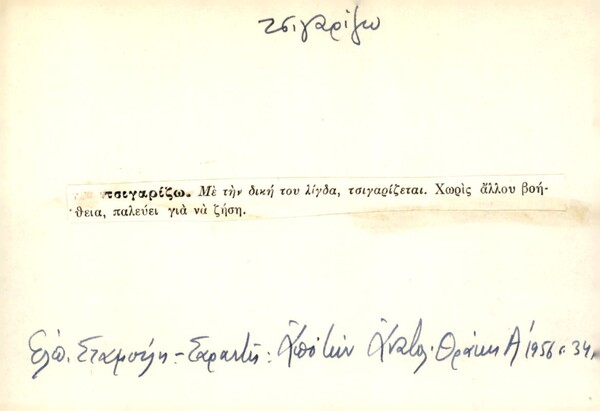 τσιγαρίζω
τσιγαρίζω. Μὲ τὴν δική του λίγδα, τσιγαρίζεται. Χωρὶς ἄλλου βοή-
θεια, παλεύει γιὰ νὰ ζήση.
Ἐλπ. Σταμούλη - Σαραντῆ: Ἀπὸ τὴν Ἀνατολ. Θράκην Α΄ 1956 σ. 34.